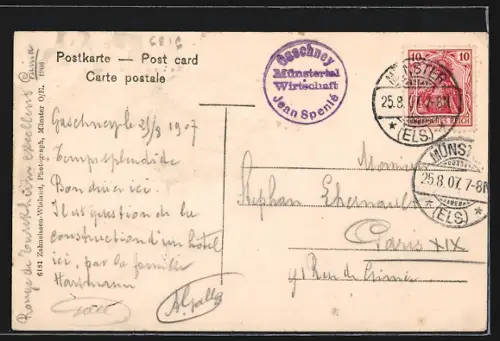 6816
Postkarte — Post card
Carte postale
Gaschney
Münstertal
Wirtschaft
Jean Spenlé
10 10
DEUTSCHES REICH
MÜNSTER
25.8.07. 7-8N
* (ELS) *
MÜNST
25.8.07. 7-8N
* (ELS) *
Rouge de Turckheim excellens
6181 Zehnelsen-Wieland, Photograph, Münster O/E. 1906
Gaschney le 25/8 1907
Temps splendide
Bon diner ici.
Il est question de la
construction d'un hôtel
ici, par la famille
Hartmann
Monsieur
Stephan Ehrenault
Paris XIX
41 Rue de Crimée